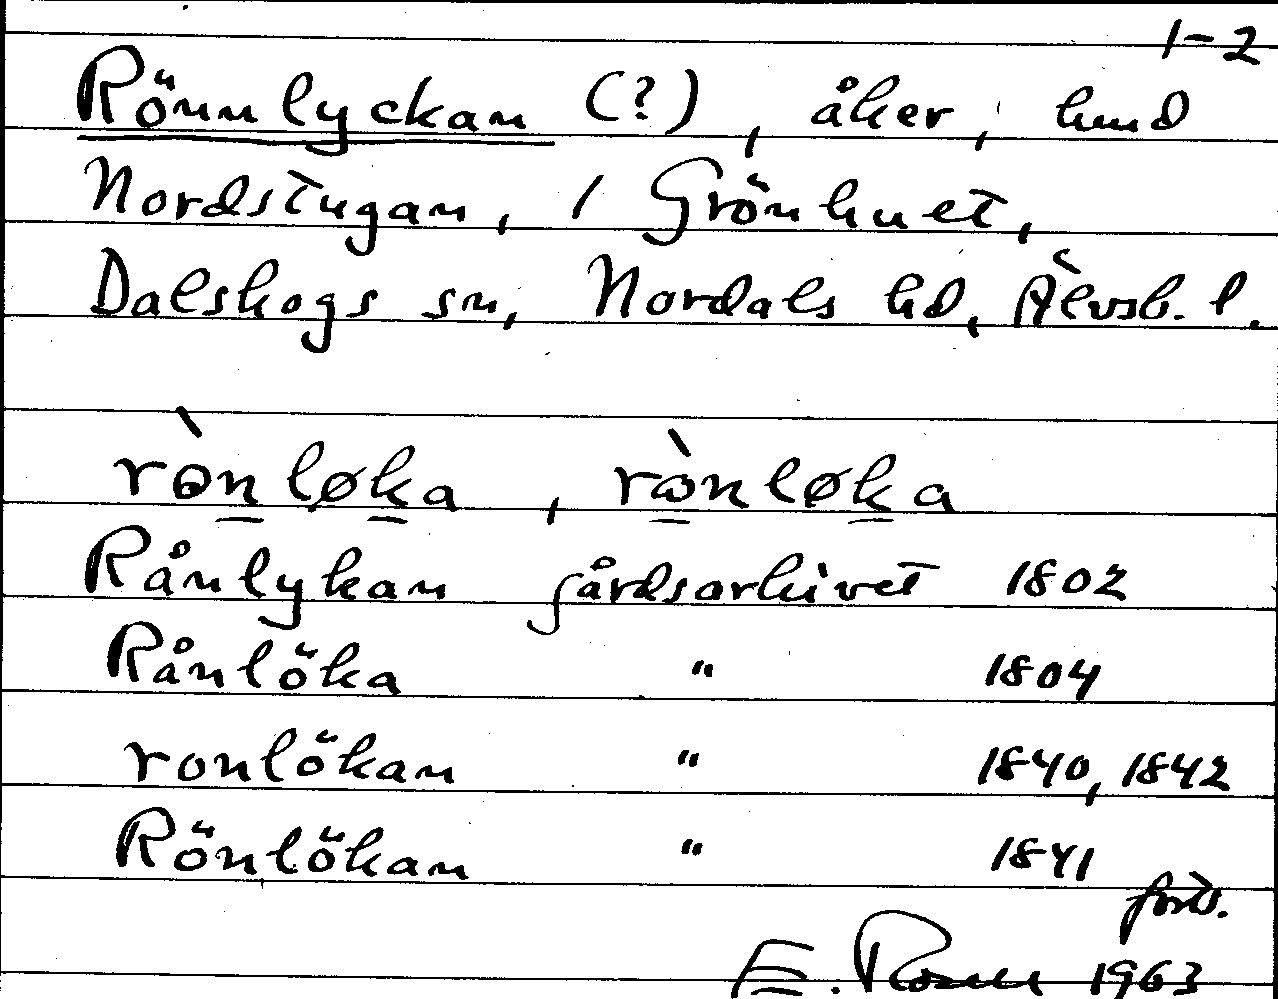 1-2
Rönnlyckan (?), åker, hmd
Nordstugan, 1 Grönhuet,
Dalskogs sn, Nordals hd, Älvsb. l.
rònløka, rònløka
Rånlykan gårdsarkivet 1802
Rånlöka " 1804
ronlökan " 1840, 1842
Rönlökan " 1841
forts.
E. 1963